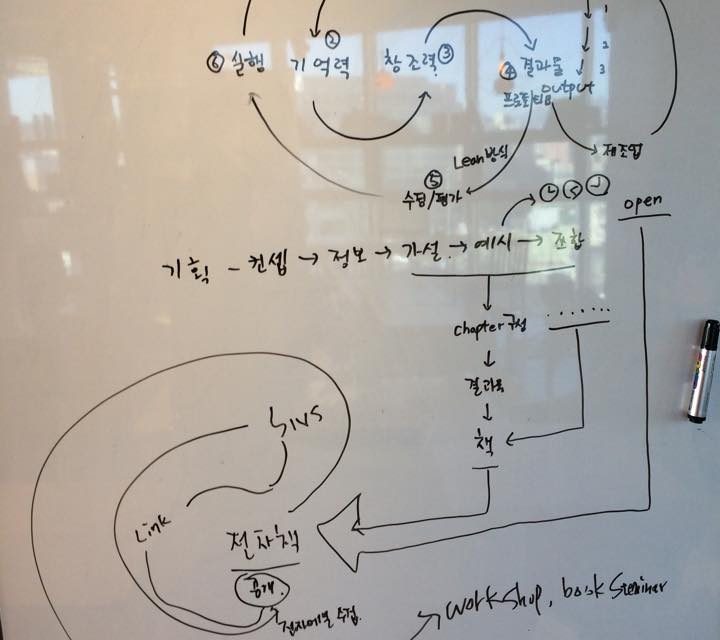 1
2
3
⑥ 실행
② 기억력
창조력 ③
④ 결과물
프로토타입 output
제조업
Lean 방식
⑤
수정/평가
open
기획 - 컨셉 → 정보 → 가설 → 예시 → 조합
chapter 구성
.......
결과물
책
SNS
Link
전자책
공개
workshop, book Steminar